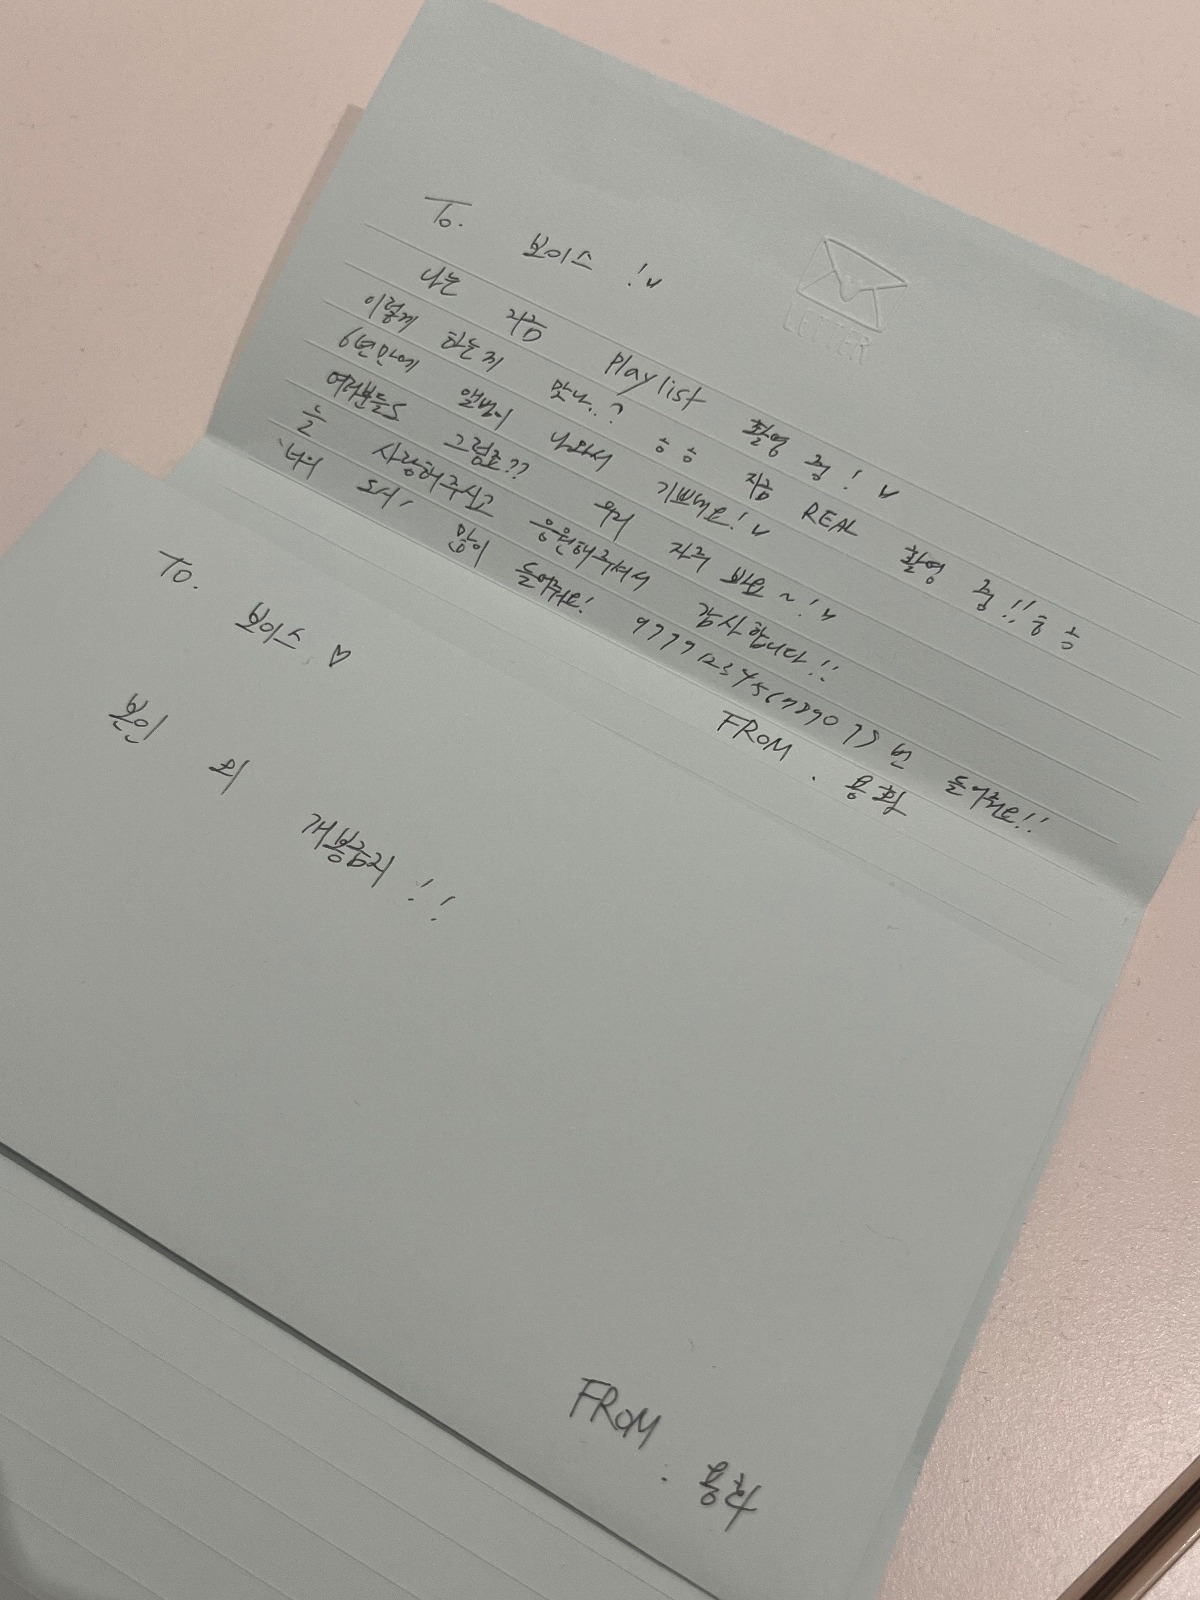 To. 보이스 !
LETTER
나는 지금 Playlist 촬영 중!
이렇게 하는게 맞나..? ㅎㅎ 지금 REAL 촬영 중!! ㅎㅎ
6년만에 앨범이 나와서 기쁘네요!
여러분들도 그렇죠?? 우리 자주 봐요~!
늘 사랑해주시고 응원해주셔서 감사합니다!!
'너의 도시' 많이 들어줘요! 번 들어줘요!!
FROM. 용화
TO. 보이스 ♡
본인 외
개봉금지 !!
FROM. 용화